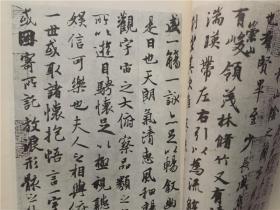 賢畢至少長咸
崇山
有峻領茂林脩竹又有清
湍暎帶左右引以為流觴
盛一觴一詠亦足以暢叙幽
是日也天朗氣清惠風和暢
觀宇宙之大俯察品類之
所以遊目騁懷足以極視聽
娛信可樂也夫人之相與俯
一世或取諸懷抱悟言一室
或因寄所託放浪形骸之